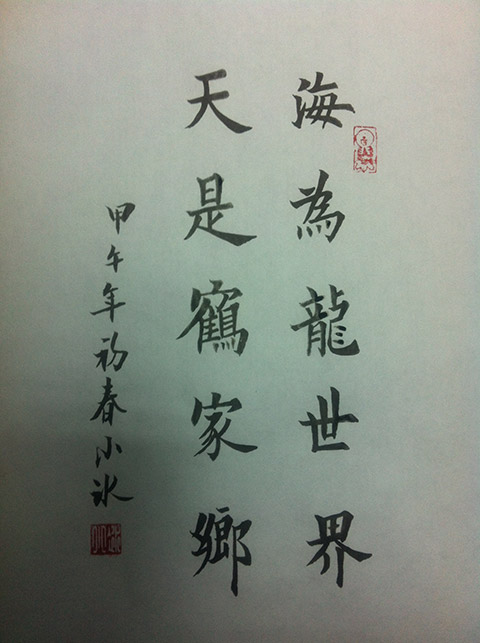 海為龍世界
天是鶴家鄉
甲午年初春小冰